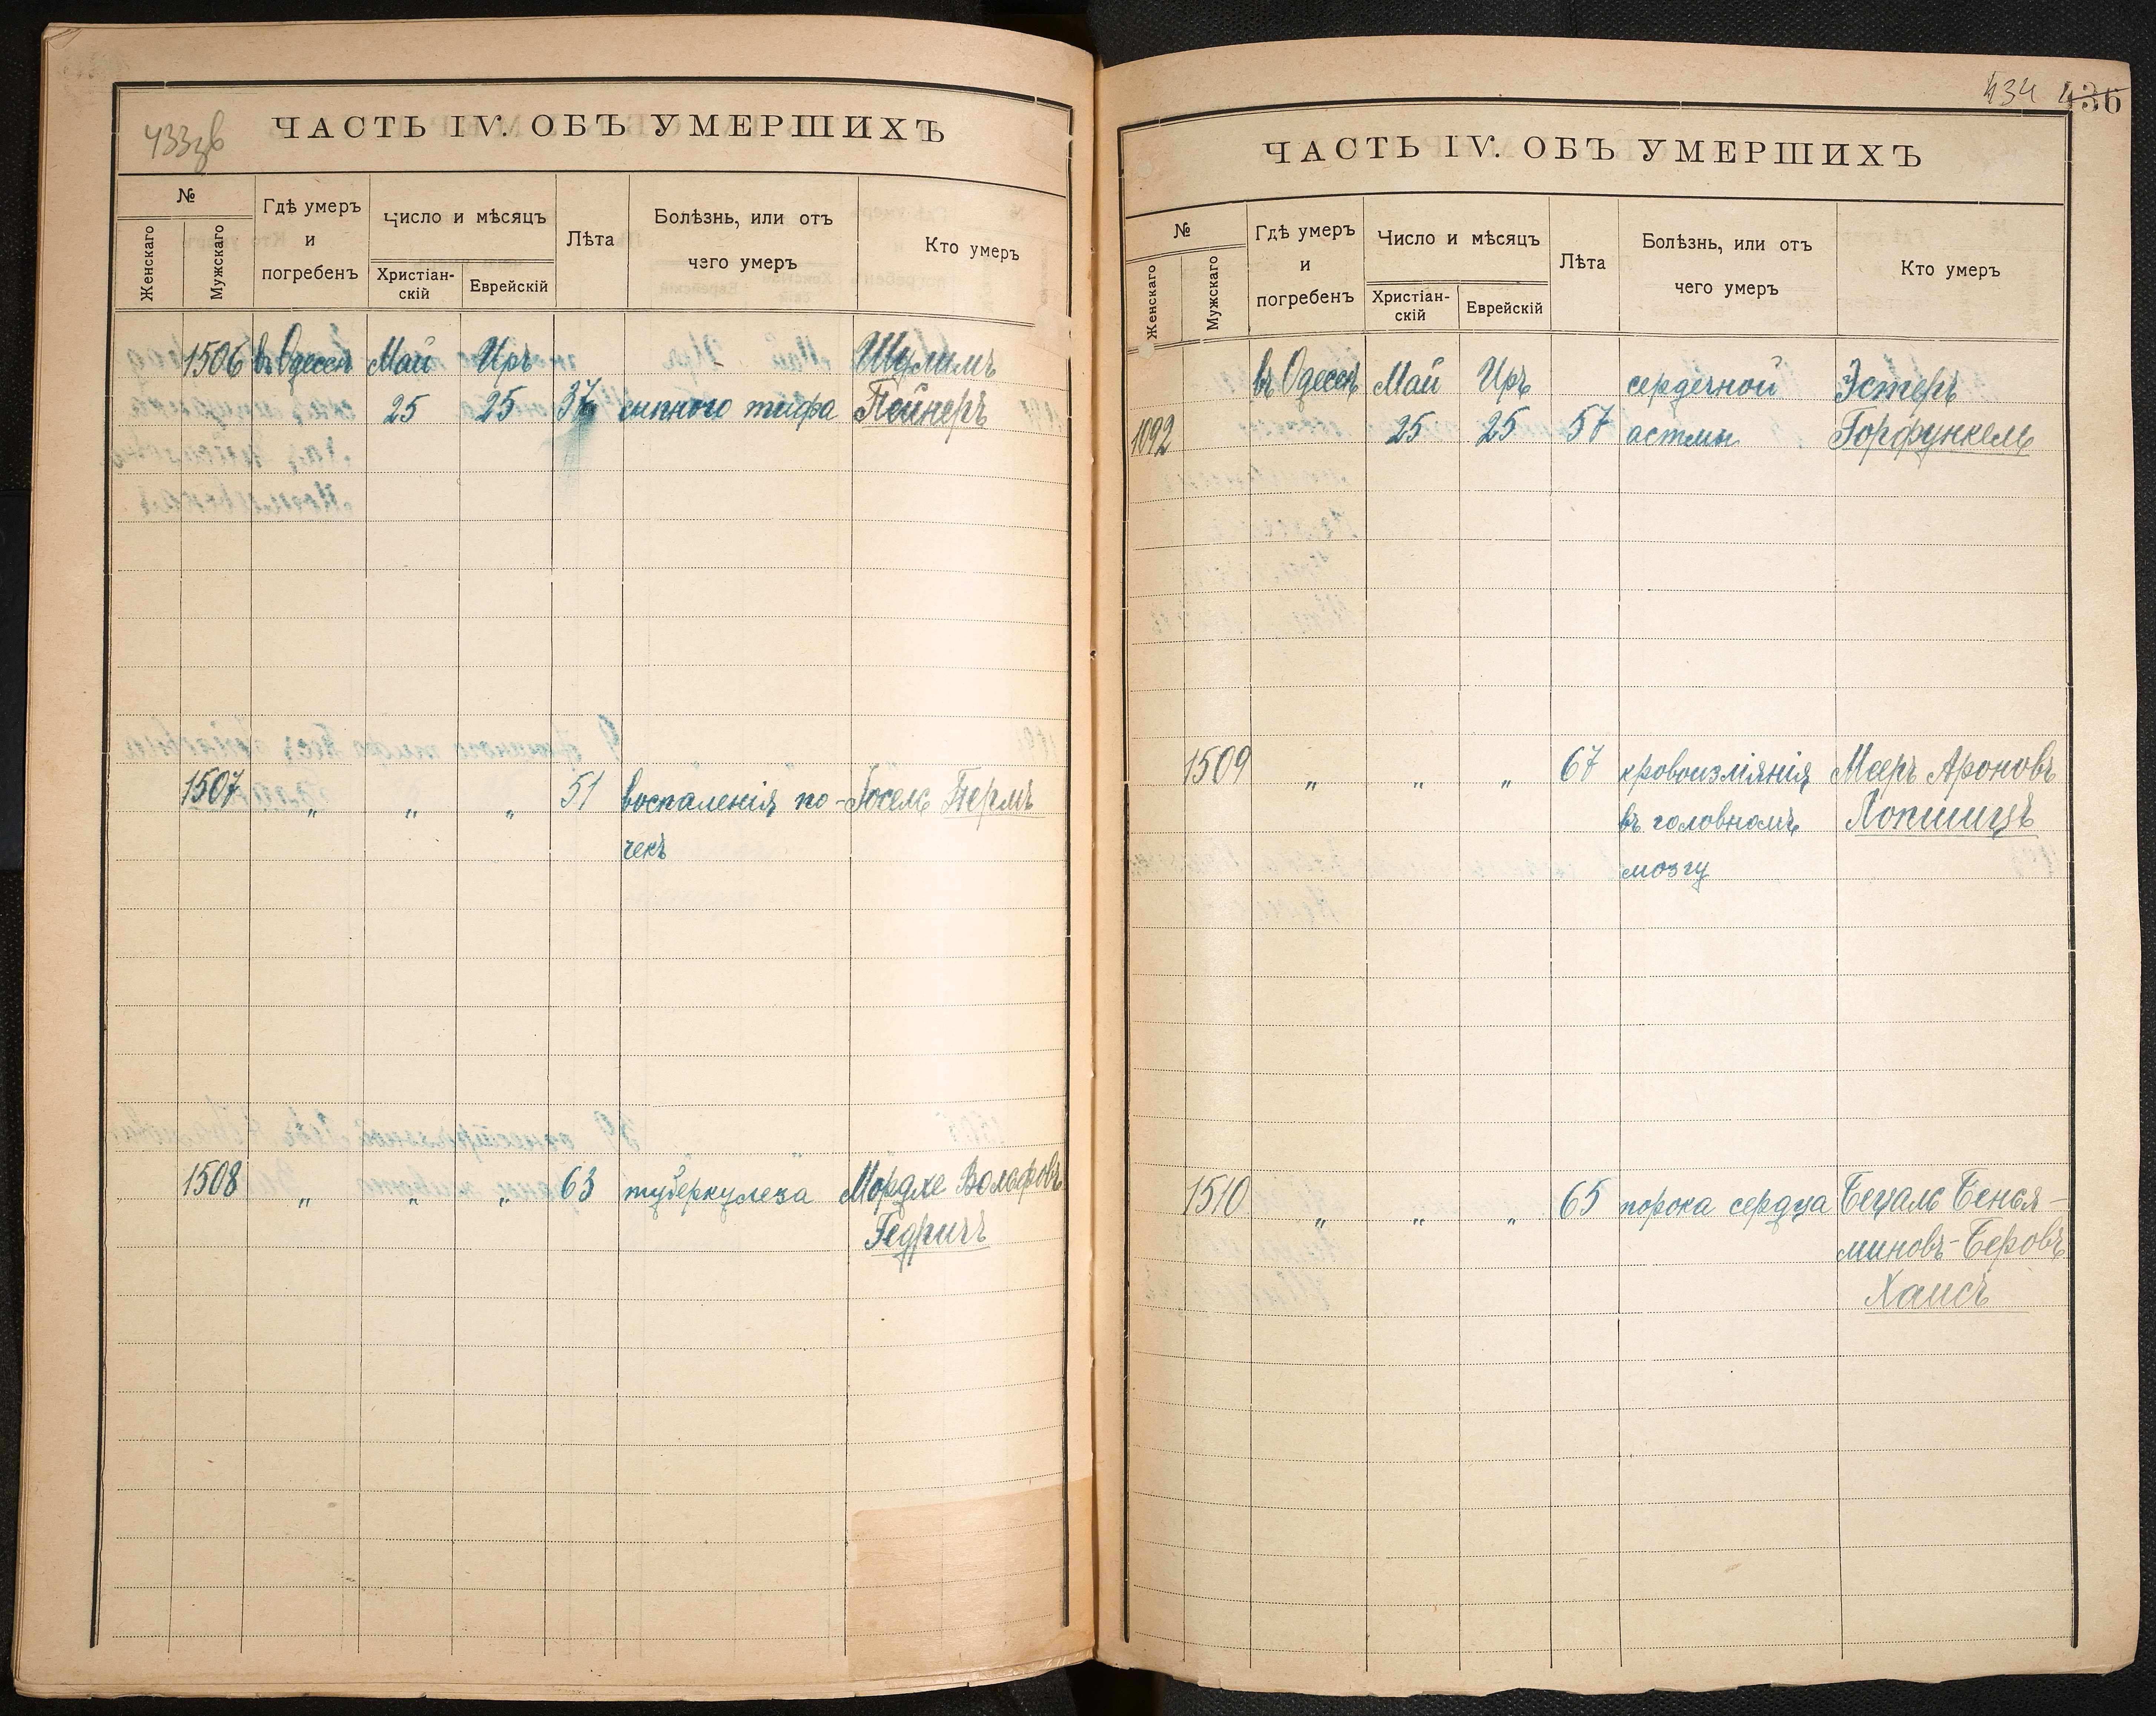 433зв
ЧАСТЬ IV. ОБЪ УМЕРШИХЪ
№
Женскаго
Мужскаго
Гдѣ умеръ
и
погребенъ
Число и мѣсяцъ
Христіан-
скій
Еврейскій
Лѣта
Болѣзнь, или отъ
чего умеръ
Кто умеръ
1506 въ Одессѣ Май Иръ Шулимъ
25 25 37 сыпного тифа Пейнеръ
1507 " " " 51 воспаленія по- Іосель Перль
чекъ
1508 " " " 63 туберкулеза Мордхе Вольфовъ
Гедричъ
434 436
ЧАСТЬ IV. ОБЪ УМЕРШИХЪ
№
Женскаго
Мужскаго
Гдѣ умеръ
и
погребенъ
Число и мѣсяцъ
Христіан-
скій
Еврейскій
Лѣта
Болѣзнь, или отъ
чего умеръ
Кто умеръ
въ Одессѣ Май Иръ сердечной Эстеръ
1092 25 25 57 астмы Горфункель
1509 " " " 67 кровоизліянія Мееръ Ароновъ
въ головномъ Копшицъ
мозгу
1510 " " " 65 порока сердца Бецаль Бенья-
миновъ-Беровъ
Хаисъ